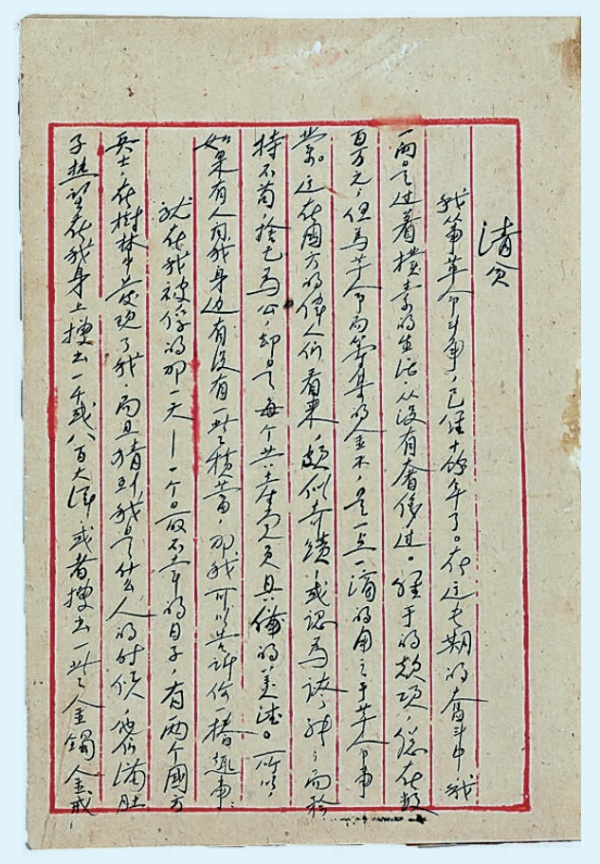 清贫
我從事革命斗争，已經十餘年了。在这长期的奮斗中，我
一向是过着樸素的生活，从没有奢侈过。經手的款項，總在数
百万元，但為革命而筹集的金錢，是一点一滴的用之于革命事
業。这在國方的偉人们看来，頗似奇績，或認為誇张；而矜
持不苟，捨己為公，却是每个共產党員具備的美德。所以，
如果有人问我身边有没有一些積蓄，那我可以告訴你一樁趣事：
就在我被俘的那一天——一个最不幸的日子，有两个國方
兵士，在樹林中發現了我，而且猜到我是什么人的时候，他们满肚
子热望在我身上搜出一千或八百大洋，或者搜出一些金鐲金戒